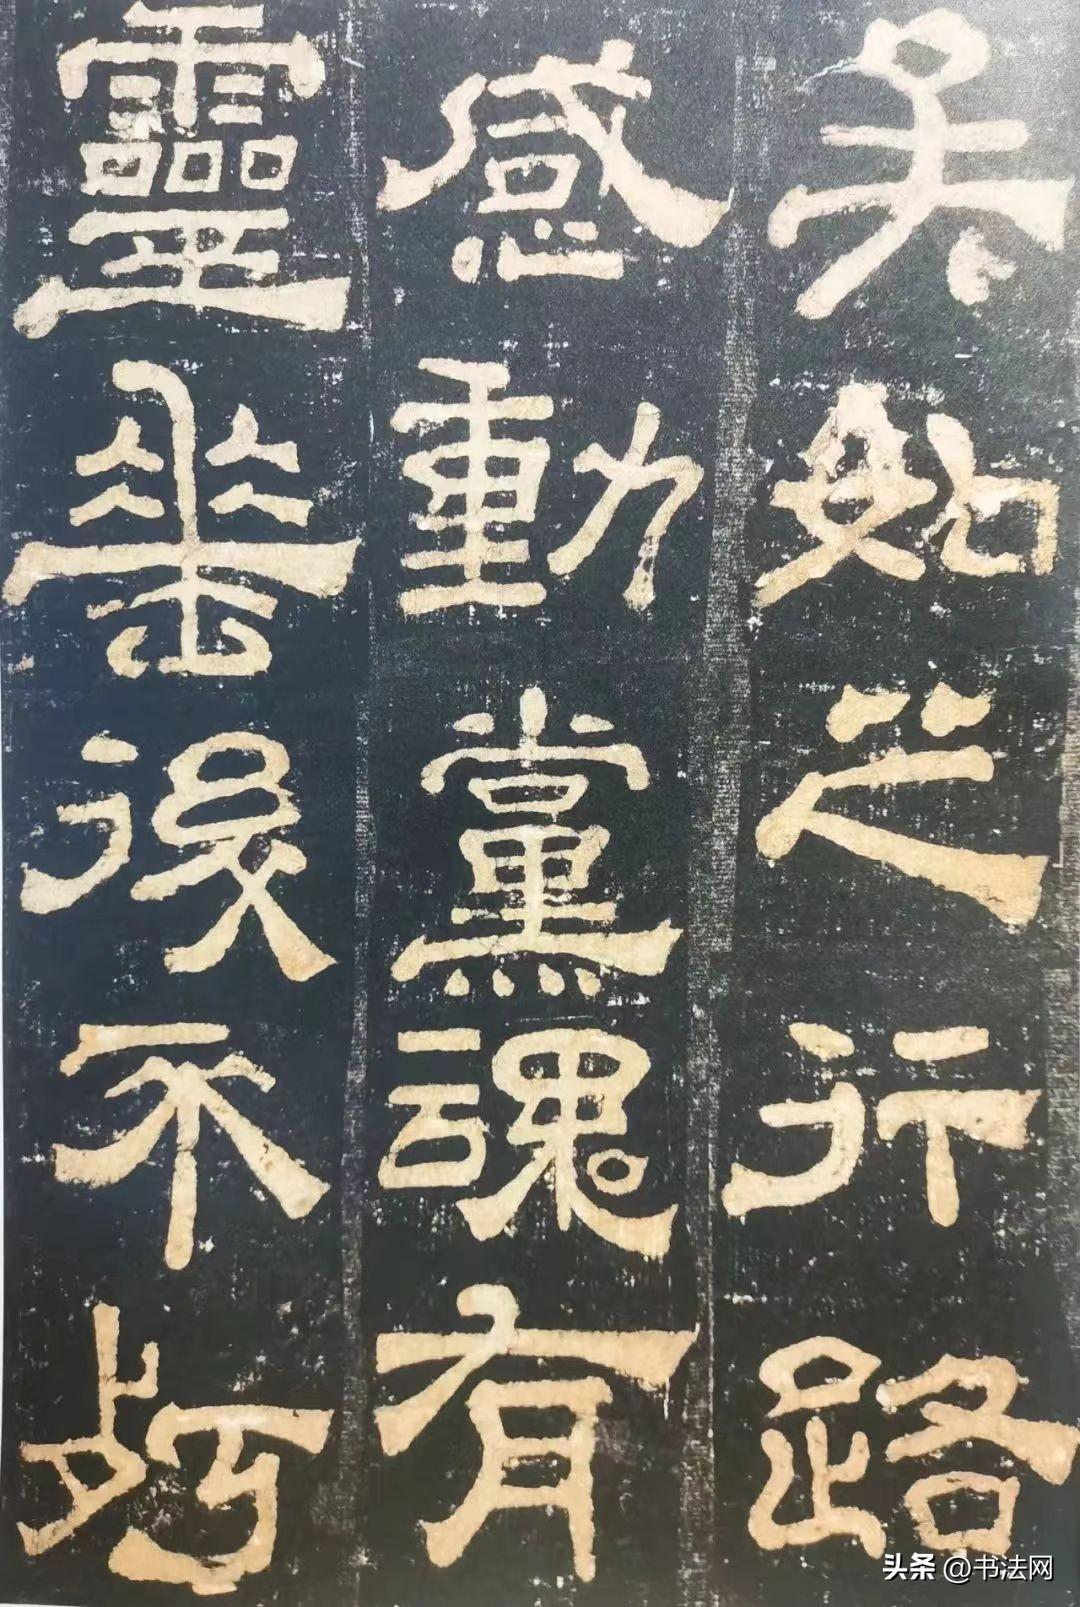 矣如之行路
感動黨魂有
靈垂後不朽
头条 @书法网